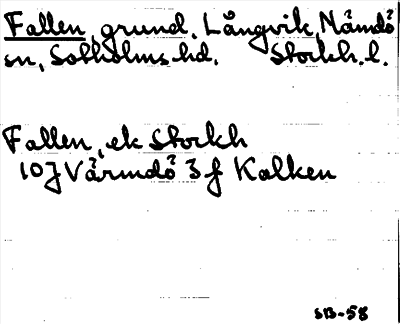 Fallen, grund, Långvik, Nämdö
sn, Sotholms hd. Stockh. l.
Fallen, ek Stockh
10J Värmdö 3 f Kalken
SB-58